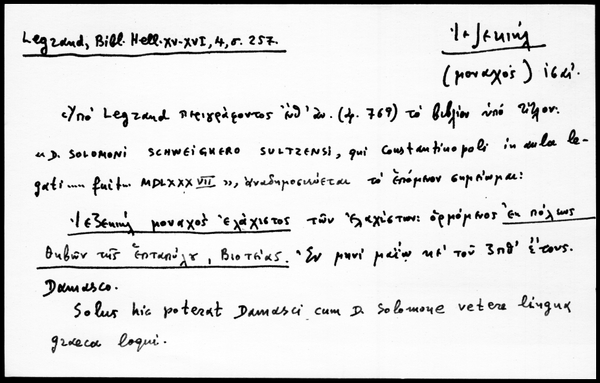 Legrand, Bibl. Hell. XV-XVI, 4, σ. 257.
Ἰεζεκιήλ
(μοναχὸς) ιϛ´ αἰ.
Ὑπὸ Legrand περιγράφοντος ὑπ' ἀν. (ἀρ. 769) τὸ βιβλίον ὑπὸ τίτλον:
« D. SOLOMONI SCHWEIGKERO SULTZENSI, qui Constantinopoli in aula le-
gati .... fuit... MDLXXXVII », ἀναδημοσιεύεται τὸ ἑπόμενον σημείωμα:
Ἰεζεκιὴλ μοναχὸς ἐλάχιστος τῶν ἐλαχίστων: ὁρμόμενος ἐκ πόλεως
Θηβῶν τῆς ἑπταπύλου, Βιοτείας. Ἐν μηνὶ μαΐῳ κε´ τοῦ ζπθ´ ἔτους.
Damasco.
Solus hic poterat Damasci cum D. Solomone vetere lingua
graeca loqui.